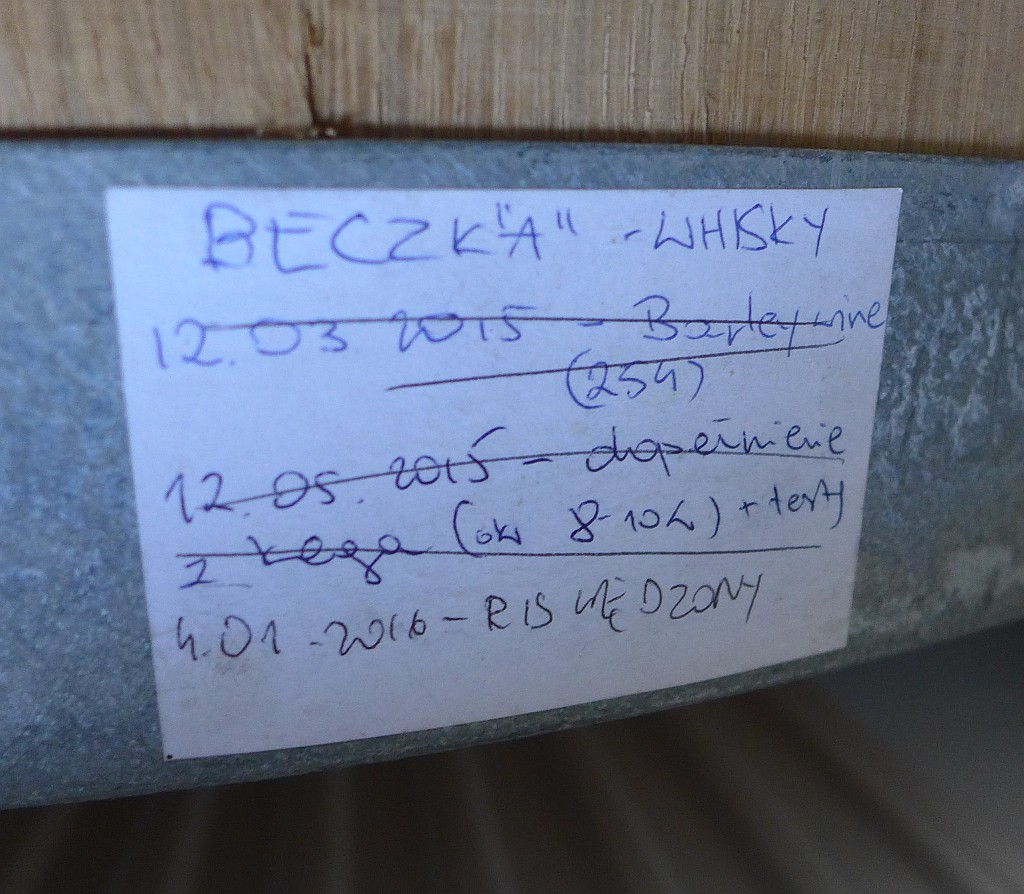 BECZK"A" - WHISKY
12.03.2015 - Barleywine
(254)
12.05.2015 - dopełnienie
z kega (ok 8-10L) + testy
4.01.2016 - RIS WĘDZONY